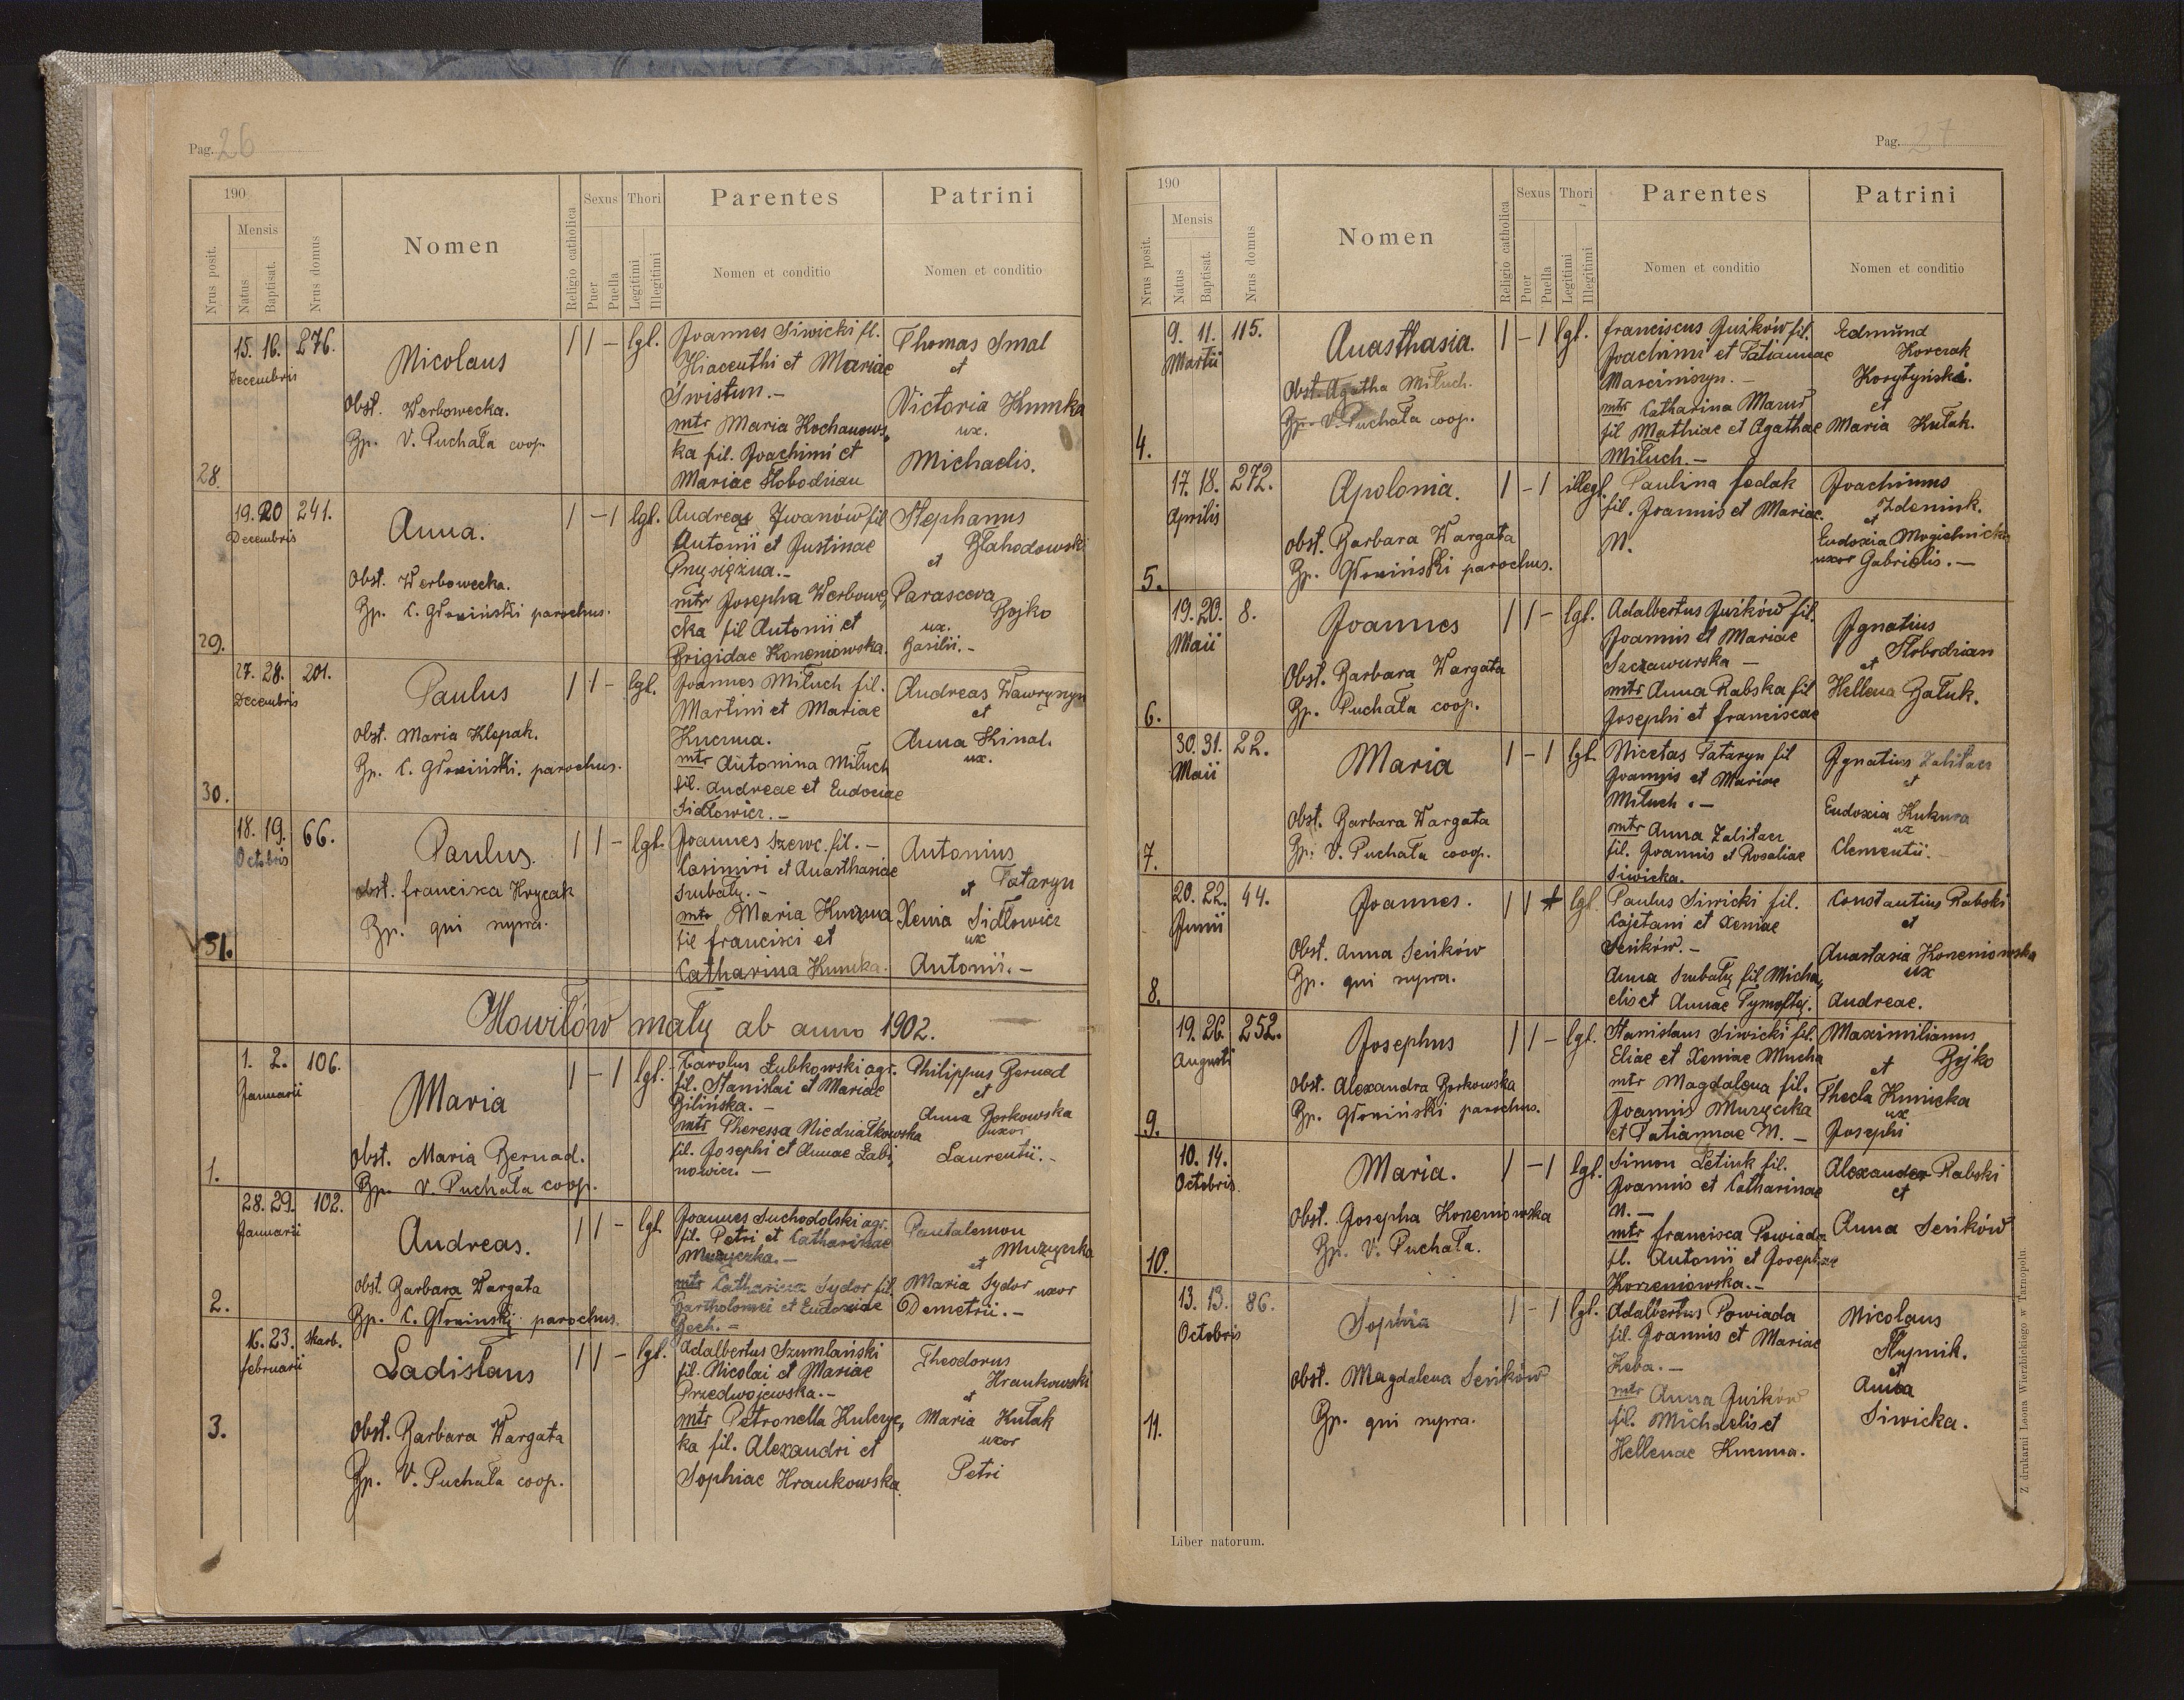 Pag. 26
190
Nrus posit.
Mensis
Natus
Baptisat.
Nrus domus
Nomen
Religio catholica
Sexus
Puer
Puella
Thori
Legitimi
Illegitimi
Parentes
Nomen et conditio
Patrini
Nomen et conditio
28.
15. 16. 276.
Decembris
Micolaus
Obst. Werbowecka.
Bp. V. Puchała coop.
1 1 – lgl.
Joannes Siwicki fl.
Hiacenthi et Mariae
Świstun.–
mtr Maria Kochanows
ka fil. Joachimi et
Mariae Słobodzian
Thomas Smal
et
Victoria Kumka
ux.
Michaelis.
29.
19. 20 241.
Decembris
Anna.
Obst. Werbowecka.
Bp. C. Głoziński parochus.
1 – 1 lgl.
Andreas Iwanów fil
Antonii et Justinae
Pryziężna.–
mtr Josepha Werbowe
cka fil Antonii et
Brigidae Korzeniowska.
Stephanus
Błahodowski
et
Parasceva
Bojko
ux.
Basilii.–
30.
27. 28. 201.
Decembris
Paulus
Obst. Maria Klepak.
Bp. C. Głoziński. parochus.
1 1 – lgl.
Joannes Miłuch fil.
Martini et Mariae
Kuczma.
mtr Antonina Miłuch
fil. Andreae et Eudoxiae
Sidłowicz.–
Andreas Wawryszyn
et
Anna Kinal.
ux.
31.
18. 19. 66.
Octobris
Paulus.
obst. francisca Hrycak
Bp. qui supra.
1 1 – lgl.
Joannes Szewc. fil.–
Casimiri et Anasthasiae
Szubały.–
mtr Maria Kuczma
fil francisci et
Catharina Kumka.
Antonius
Tataryn
et
Xenia Sidłowicz
ux
Antonii.–
Howiłów mały ab anno 1902.
1.
1. 2. 106.
Januarii
Maria
Obst. Maria Bernad.
Bp. V. Puchała coop.
1 – 1 lgl.
Carolus Łubkowski agr.
fil. Stanislai et Mariae
Bilińska.–
mtr Theressa Niedziałkowska
fil. Josephi et Annae Łabi
nowicz.–
Philippus Bernad
et
Anna Borkowska
uxor
Laurentii.–
2.
28. 29. 102.
Januarii
Andreas.
obst. Barbara Wargata
Bp. C. Głoziński parochus.
1 1 – lgl.
Joannes Suchodolski agr.
fil. Petri et Catharinae
Muzyczka.–
mtr Catharina Sydor fil.
Bartholomei et Eudoxiae
Bech.–
Pantalemon
Muzyczka
et
Maria Sydor uxor
Demetrii.–
3.
16. 23. Skarb.
februarii
Ladislaus
Obst. Barbara Wargata
Bp. V. Puchała coop.
1 1 – lgl.
Adalbertus Szumlański
fil. Nicolai et Mariae
Przedwojewska.–
mtr Petronella Kulczyc,
ka fil. Alexandri et
Sophiae Hrankowska.
Theodorus
Hrankowski
et
Maria Kułak
uxor
Petri
Pag. 27
190
Nrus posit.
Mensis
Natus
Baptisat.
Nrus domus
Nomen
Religio catholica
Sexus
Puer
Puella
Thori
Legitimi
Illegitimi
Parentes
Nomen et conditio
Patrini
Nomen et conditio
4.
9. 11. 115.
Martii
Anasthasia.
Obst. Agatha Miłuch.
Bp. V. Puchała coop.
1 – 1 lgl.
franciscus Juźków fil.
Joachimi et Tatiannae
Marciniszyn.–
mtr Catharina Mazur
fil Mathiae et Agathae
Miłuch.–
Edmund
Korczak
Korytyński.
et
Maria Kułak.
5.
17. 18. 272.
Aprilis
Apolonia.
obst. Barbara Wargata
Bp. Głoziński parochus.
1 – 1 illegl.
Paulina fedak
fil. Joannis et Mariae.
N.
Joachimus
Zdeniuk.
et
Eudoxia Mogielnicka
uxor Gabrielis.–
6.
19. 20. 8.
Maii
Joannes
Obst. Barbara Wargata
Bp. Puchała coop.
1 1 – lgl.
Adalbertus Juźków fil.
Joannis et Mariae
Szczawurska –
mtr Anna Rabska fil
Josephi et franciscae
Jgnatius
Słobodzian
et
Hellena Bałuk.
7.
30. 31. 22.
Maii
Maria
Obst. Barbara Wargata
Bp. V. Puchała coop.
1 – 1 lgl.
Nicetas Tataryn fil
Joannis et Mariae
Miłuch.–
mtr Anna Zalitacz
fil. Joannis et Rosaliae
Siwicka.
Jgnatius Zalitacz
et
Eudoxia Kukura
ux
Clementii.
8.
20. 22. 44.
Junii
Joannes.
Obst. Anna Seńków
Bp. qui supra.
1 1 + lgl.
Paulus Siwicki fil.
Cajetani et Xeniae
Seńków.–
Anna Szubały fil Micha,
elis et Annae Tymofiej.
Constantius Rabski
et
Anastasia Korzeniowska
ux
Andreae.
9.
19. 26. 252.
Augusti
Josephus
Obst. Alexandra Borkowska
Bp. Głoziński parochus.
1 1 – lgl.
Stanislaus Siwicki fil.
Eliae et Xeniae Mucha
mtr Magdalena fil.
Joannis Muzyczka
et Tatiannae N.–
Maximilianus
Bojko
et
Thecla Kmicka
ux
Josephi
10.
10. 14.
Octobris.
Maria.
Obst. Josepha Korzeniowska
Bp. V. Puchała.
1 – 1 lgl.
Simon Letiuk fil.
Joannis et Catharinae
N.–
mtr francisca Powiada
fl. Antonii et Josephae
Korzeniowska.–
Alexander Rabski
et
Anna Seńków
11.
13. 13. 86.
Octobris
Sophia
obst. Magdalena Seńków
Bp. qui supra.
1 – 1 lgl.
Adalbertus Powiada
fil. Joannis et Mariae
Keba.–
mtr Anna Juźków
fil. Michaelis et
Hellenae Kuczma.
Nicolaus
Słupnik.
et
Anna
Siwicka.
Liber natorum.
Z drukarni Leona Wierzbickiego w Tarnopolu.